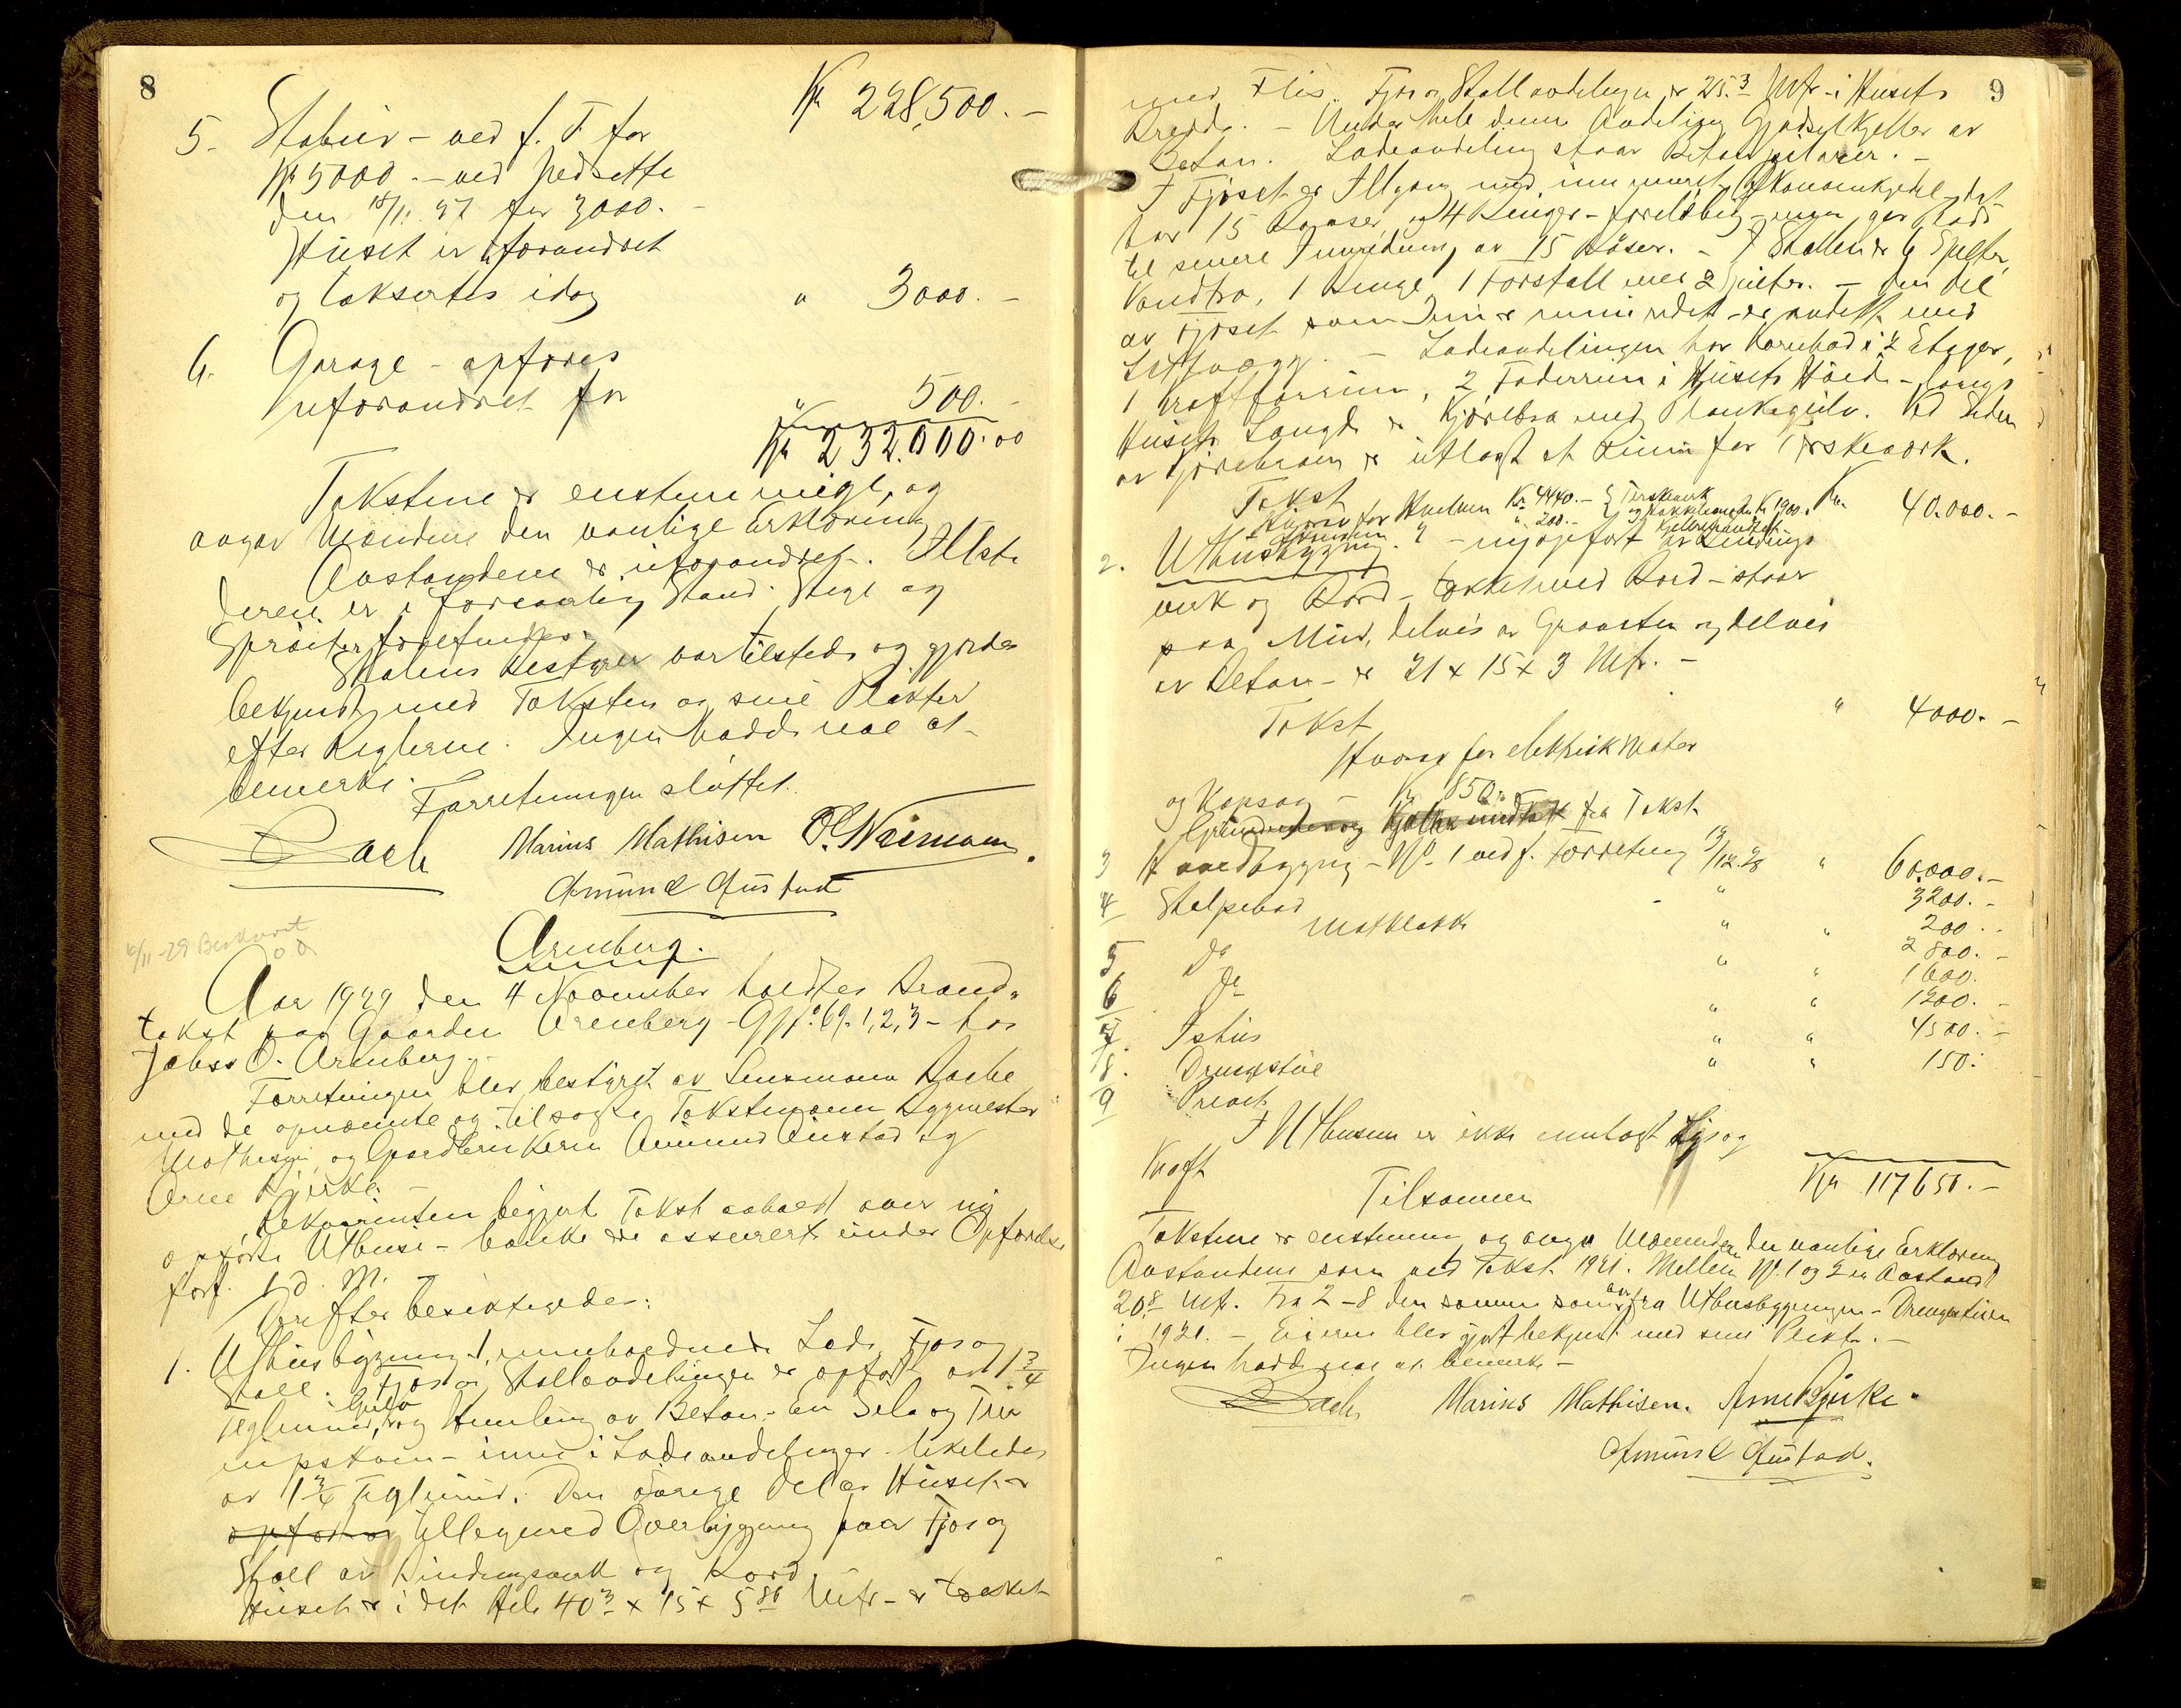 8
Kr 228,500.-
5. Stabur - ved f. T. for
Kr 5000.- ved Nedsatte
den 18/11. 27 for 3000.-
Huset er uforandret
og takseres idag " 3000.-
6. Garage - opføres
uforandret for " 500.-
Kr 232.000.00
Takstene er enstemmige, og
avgav Mændene den vanlige Erklæring
Avstandene er uforandret. Ildste
derne er i forsvarlig Stand. Stige og
Sprøiter forefindes.
Skolens Bestyrer var tilstede og gjordes
bekjendt med Taksten og sine Plikter
efter Reglerne. Ingen hadde noe at
bemerke.
Forretningen sluttet.
Bache Marius Mathisen O. Neimann.
Amund Austad
6/11-29 Beskrevet
Arenberg.
Aar 1929 den 4 November holdtes Brand-
takst paa Gaarden Arenberg - Gno. 69. 1, 2, 3 - hos
Johs O. Arenberg.
Forretningen blev bestyret av Lensmann Bache
med de opnævnte og tilsagte Takstmænn Bygmester
Mathisen, og Gaardbrukerne Amund Austad og
Arne Bjerke.
Rekvirenten begjært Takst avholdt over ny
opførte Uthus - hvilke er assurert under Opførelse
forf. 1 d. M.
Derefter besiktigedes:
1. Uthusbygning 1, inneholdende Lade, Fjøs og
Stall. Fjøs og Stallavdelingen er opført av 1 3/4
Teglmur, Gulv og Hvelving av Beton. En Silo og Tu
nipskum - inne i Ladeavdelingen likeledes
av 1 3/4 Teglmur. Den øvrige Del av Huset er
opført av tillegmed Overbygning paa Fjøs og
Stall av Bindingsverk og Bord
Huset er i det Hele 40 3 x 15 x 5 80 Mtr - er tækket
9
med Flis. Fjøs og Stallavdelingen er 25.3 Mtr i Husets
Bredde. - Under hele denne Avdeling Gjødselkjeller av
Beton. Ladeavdeling staar Betonpilarer. -
I Fjøset er Ildgang med innmuret Økonomikjedel - det
har 15 Baaser, og 4 Binger - foreløbig - men gir Plads
til senere Innredning av 15 Båser. - I Stallen er 6 Spiltou,
Vandtro, 1 Binge 1 Forstall med 2 Spiltou. - Den Del
av Fjøset som er innredet - er avdelt med
Lettvægg. - Ladeavdelingen har Kornbod i 2 Etager,
1 Kraftforrum, 2 Foderrum i Husets Høide - langs
Husets Længde er Kjørebro med Plankegulv. Ved Siden
av Kjørebroen er utlagt et Rum for Tærskeverk.
Takst Kr. 40.000.-
Herav for Hvelven Kr. 4440.- Terskeverk
" 200.- Kr 1900.-
2. Uthusbygning 2 - nyopført av Bindings
verk og Bord - tækket med Bord - staar
paa Mur, delvis av Graasten og delvis
av Beton - er 21 x 15 x 3 Mtr. -
Takst " 4000.-
Hvorav for elektrisk Motor
og Kapsag - Kr. 850.-
fra Takst
3 Hovedbygning - No. 1 ved f. Forretning 19/12.28 " 60.000.-
4 Stolpebod " 3200.-
Matklokke " " 200.-
5 Do " 2800.-
6 Do " 1600.
7. Ishus " " 1200.-
8. Drengestue " " 4500.-
9 Privet " " 150.
I Uthusene er ikke innlagt Lys og
Kraft
Tilsammen Kr 117650.-
Takstene er enstemm. og avgav Mændene den vanlige Erklæring
Avstandene som ved Takst 1921. Mellem No. 1 og 2 er Avstand
20.8 Mtr. Fra 2-8 den samme som fra Uthusbygningen - Drengestuen
i 1921. - Eieren blev gjort bekjent med sine Plikt. -
Ingen hadde noe at bemerke -
Bache Marius Mathisen. Arne Bjerke.
Amund Austad.